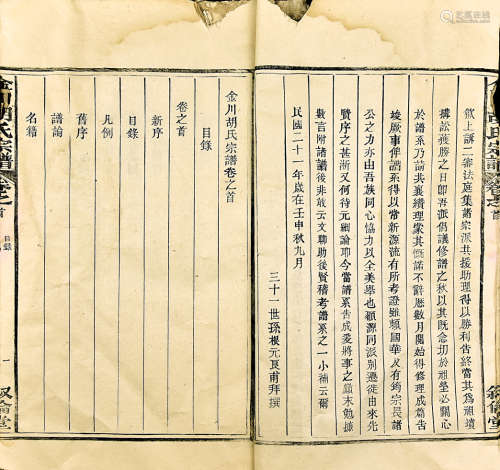 歙上訴二審法庭集諸宗派共援助理得以勝利告終當其為祖墳
搆訟獲勝之日卽吾派倡議修譜之秋以其既念切於祖塋必關心
於譜系乃諭共襄纘理蒙其慨諾不辭歷數月開始得修理成篇告
竣厥事俾譜系得以常新源流有所考證雖頻國華又有鈞宗長諸
公之力亦由吾族同心協力以全美舉也顧源同派別遷徙由來先
賢序之甚漸又何待元細論耶今當譜系告成爰將事之顛末勉據
數言附諸譜後非敢云文聊助後賢稽考譜系之一小補云爾
民國二十一年歲在壬申秋九月
三十一世孫根元良甫拜撰
金川胡氏宗譜卷之首
目錄
卷之首
新序
目錄
凡例
舊序
譜論
名籍
金川胡氏宗譜
卷之首
目錄
一
叙倫堂